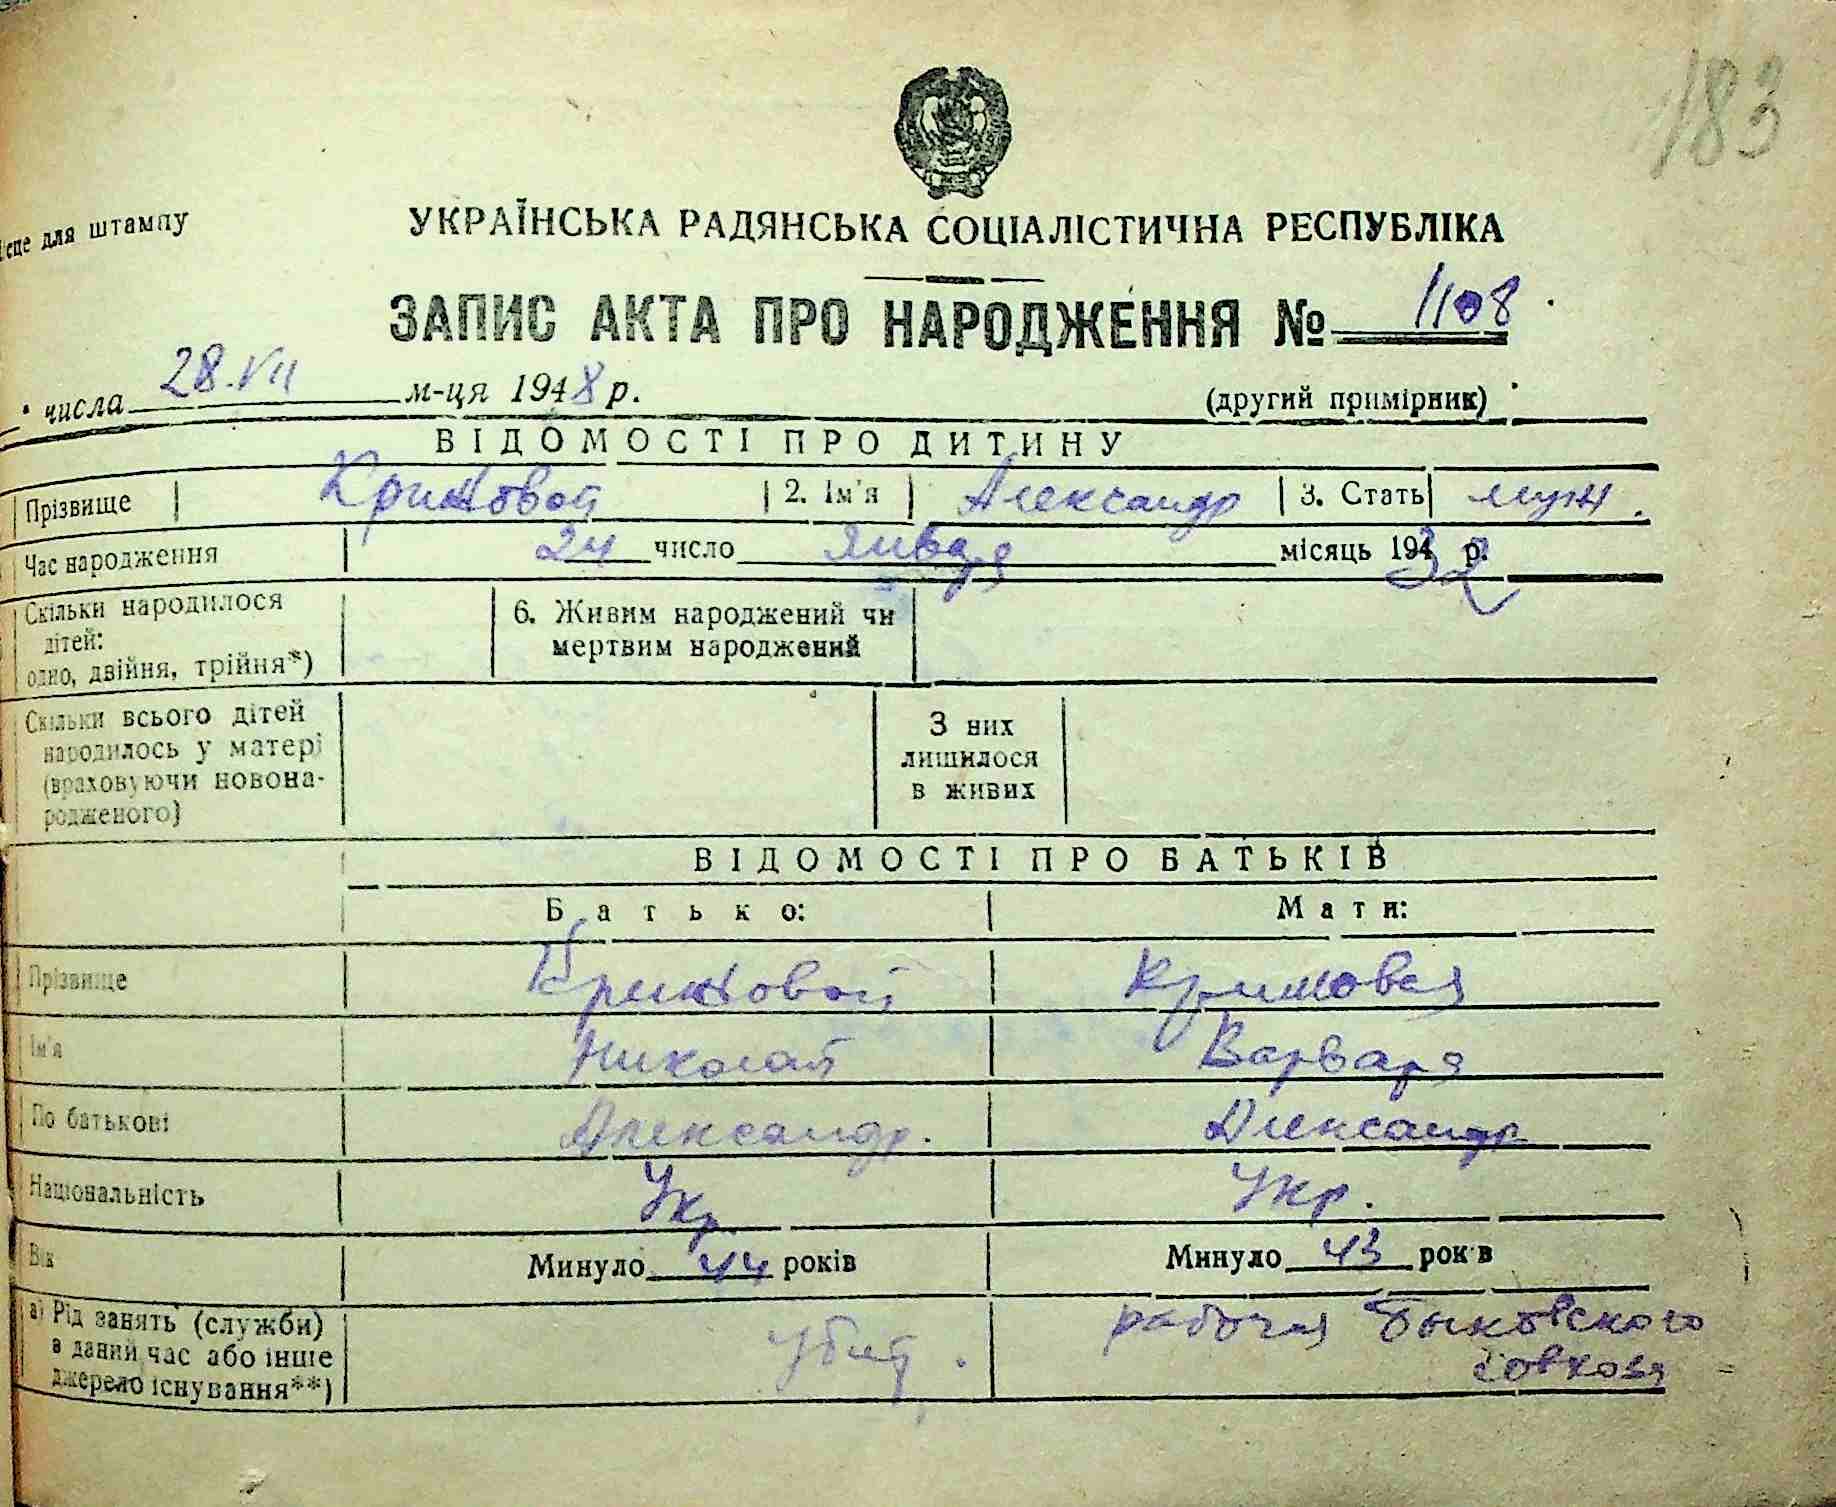 183
для штампу
УКРАЇНСЬКА РАДЯНСЬКА СОЦІАЛІСТИЧНА РЕСПУБЛІКА
ЗАПИС АКТА ПРО НАРОДЖЕННЯ № 1108
числа 28.VII м-ця 1948 р. (другий примірник)
ВІДОМОСТІ ПРО ДИТИНУ
Прізвище 2. Ім'я Александр 3. Стать муж.
Час народження 24 число января місяць 1932 р.
Скільки народилося 6. Живим народжений чи
дітей: мертвим народжений
одно, двійня, трійня*)
Скільки всього дітей З них
народилось у матері лишилося
(враховуючи новона- в живих
родженого)
ВІДОМОСТІ ПРО БАТЬКІВ
Батько: Мати:
Прізвище
Ім'я Николай Варвара
По батькові Александр. Александр
Національність Укр Укр.
Вік Минуло 44 років Минуло 43 рок в
а) Рід занять (служби) убит. рабочая Быковского
в даний час або інше совхоза
джерело існування**)